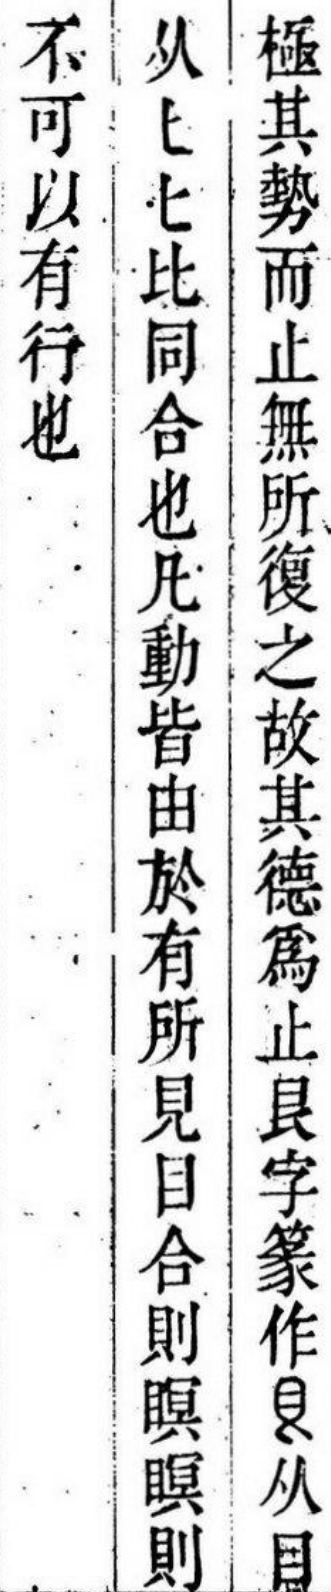 極其勢而止無所復之故其德爲止艮字篆作𥃩从目
从匕匕比同合也凡動皆由於有所見目合則瞑瞑則
不可以有行也